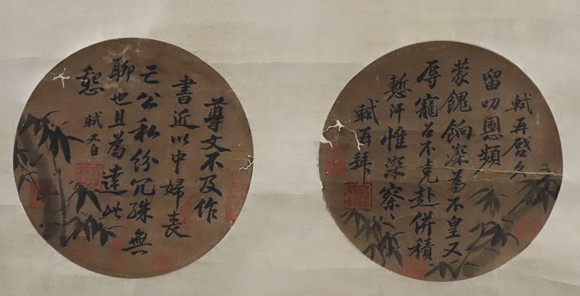 軾再啓久
留叨恩頻
蒙餽餉深爲不皇又
辱寵召不克赴併積
慙汗惟深察〻
軾再拜
尊丈不及作
書近以中婦喪
亡公私紛冗殊無
聊也且爲達此
懇 軾